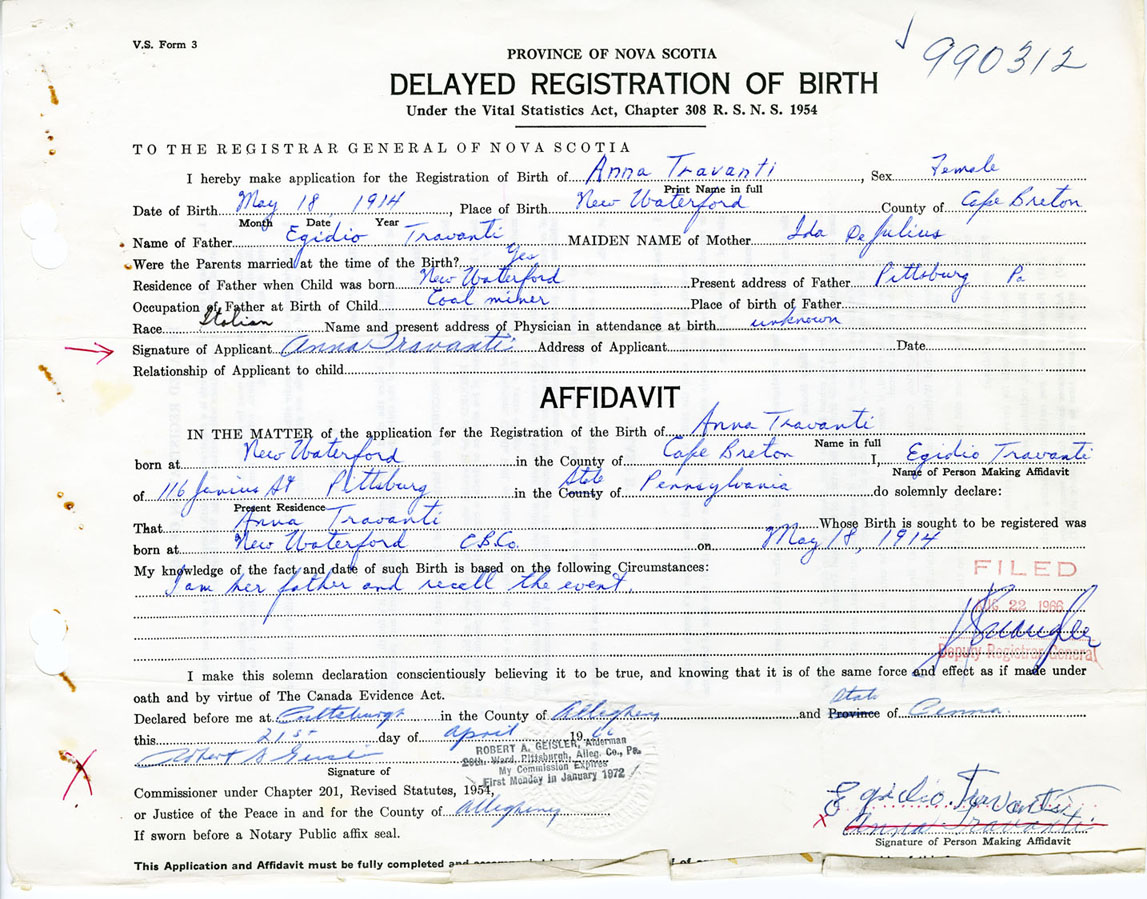 V.S. Form 3
990312
PROVINCE OF NOVA SCOTIA
DELAYED REGISTRATION OF BIRTH
Under the Vital Statistics Act, Chapter 308 R. S. N. S. 1954
TO THE REGISTRAR GENERAL OF NOVA SCOTIA
I hereby make application for the Registration of Birth of Anna Travanti, Sex Female
Print Name in full
Date of Birth May 18 1914, Place of Birth New Waterford County of Cape Breton
Month Date Year
Name of Father Egidio Travanti MAIDEN NAME of Mother Ida DeJulius
Were the Parents married at the time of the Birth? Yes
Residence of Father when Child was born New Waterford Present address of Father Pittsburg Pa
Occupation of Father at Birth of Child Coal miner Place of birth of Father
Race Italian Name and present address of Physician in attendance at birth unknown
Signature of Applicant Anna Travanti Address of Applicant Date
Relationship of Applicant to child
AFFIDAVIT
IN THE MATTER of the application for the Registration of the Birth of Anna Travanti
Name in full
born at New Waterford in the County of Cape Breton I, Egidio Travanti
Name of Person Making Affidavit
of 116 Junius St Pittsburg in the County State of Pennsylvania do solemnly declare:
Present Residence
That Anna Travanti Whose Birth is sought to be registered was
born at New Waterford C.B.Co. on May 18, 1914
My knowledge of the fact and date of such Birth is based on the following Circumstances:
I am her father and recall the event.
FILED
22 1966
Deputy Registrar General
I make this solemn declaration conscientiously believing it to be true, and knowing that it is of the same force and effect as if made under
oath and by virtue of The Canada Evidence Act.
Declared before me at Pittsburgh in the County of Allegheny and Province State of Penna.
this 21st day of April 1966
ROBERT A. GEISLER, Alderman
28th. Ward, Pittsburgh, Alleg. Co., Pa.
My Commission Expires
First Monday in January 1972
Signature of
Commissioner under Chapter 201, Revised Statutes, 1954,
or Justice of the Peace in and for the County of Allegheny
If sworn before a Notary Public affix seal.
Egidio Travanti
Anna Travanti
Signature of Person Making Affidavit
This Application and Affidavit must be fully completed and